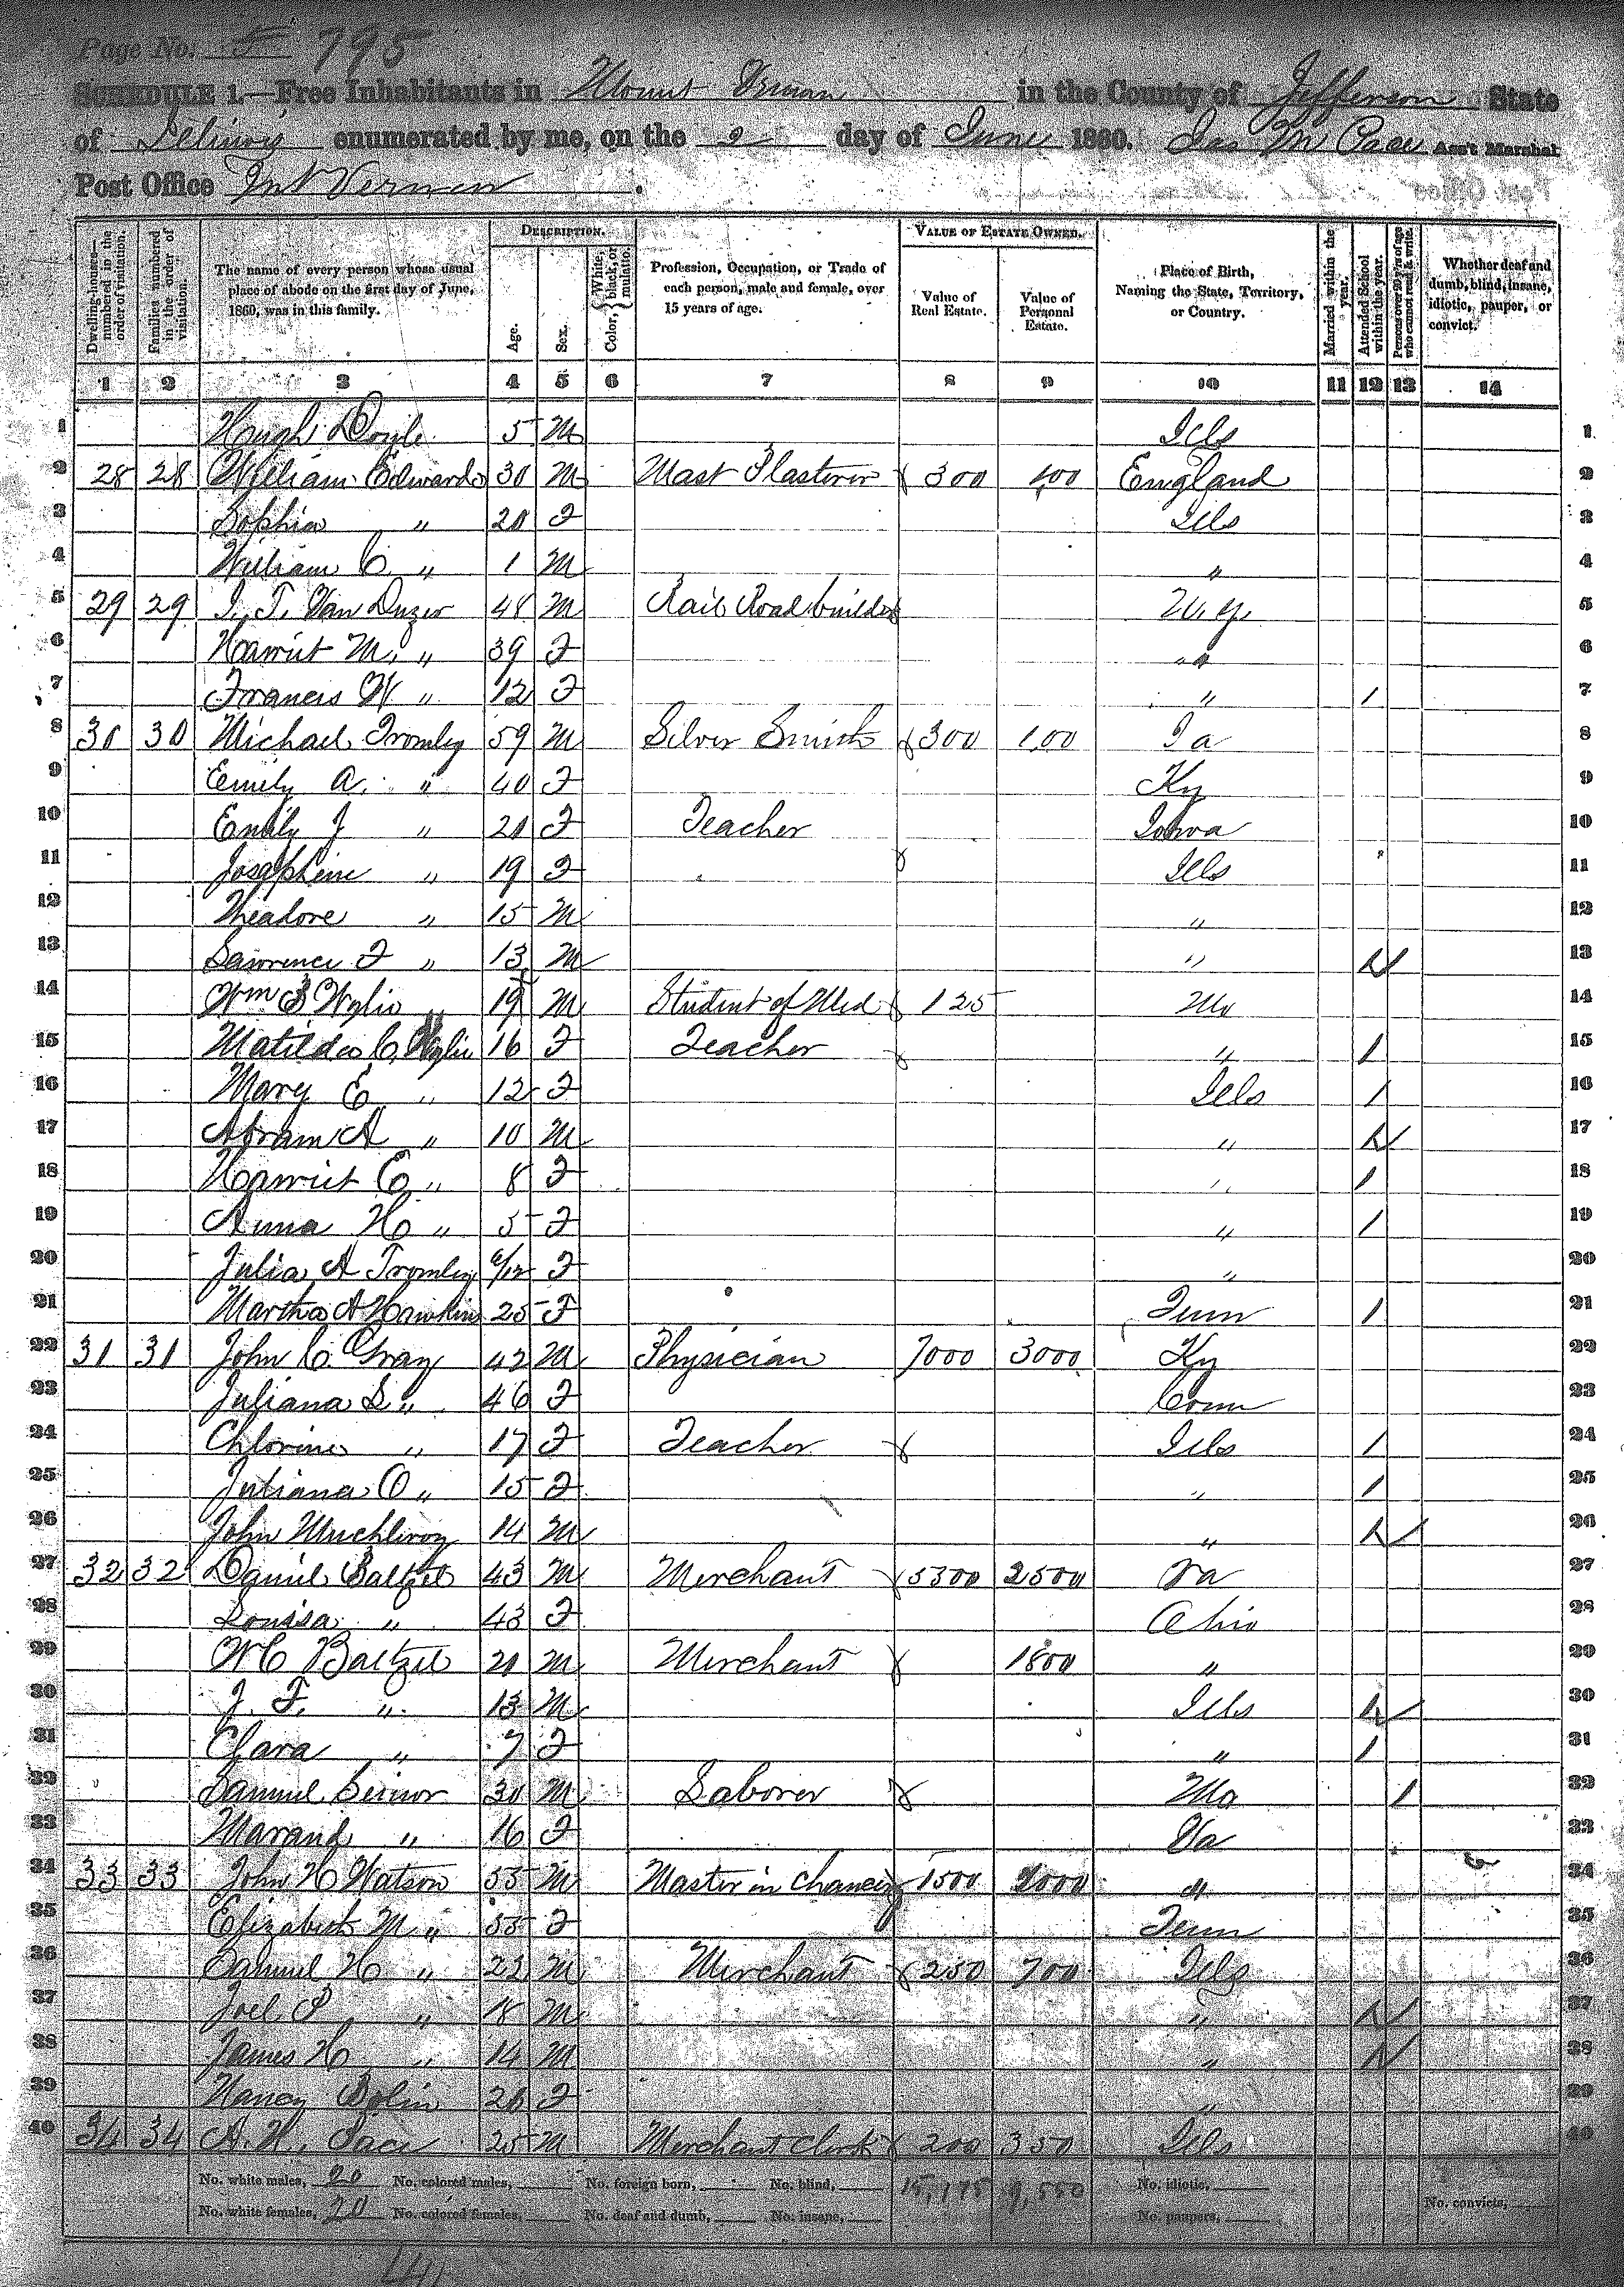 Page No. 5 795
SCHEDULE 1.—Free Inhabitants in Mount Vernon in the County of Jefferson State
of Illinois enumerated by me, on the 2 day of June 1860. Jas M Pace Ass't Marshal
Post Office Mt Vernon.
DESCRIPTION. VALUE OF ESTATE OWNED.
Dwelling-houses—numbered in the order of visitation. Families numbered in the order of visitation. The name of every person whose usual place of abode on the first day of June, 1860, was in this family. Age. Sex. Color, {White, black, or mulatto. Profession, Occupation, or Trade of each person, male and female, over 15 years of age. Value of Real Estate. Value of Personal Estate. Place of Birth, Naming the State, Territory, or Country. Married within the year. Attended School within the year. Persons over 20 y'rs of age who cannot read & write. Whether deaf and dumb, blind, insane, idiotic, pauper, or convict.
1 2 3 4 5 6 7 8 9 10 11 12 13 14
1 Hugh Doyle 5 M Ills 1
2 28 28 William Edwards 30 M Mast Plasterer 300 100 England 2
3 Sophia " 20 F Ills 3
4 William C " 1 M " 4
5 29 29 I. T. Van Duzer 48 M Rail Road builder N.Y. 5
6 Harriet M. " 39 F " 6
7 Frances W " 12 F " 1 7
8 30 30 Michael Tromly 59 M Silver Smith 300 100 8
9 Emily A. " 40 F Ky 9
10 Emily J " 20 F Teacher Iowa 10
11 Josaphine " 19 F Ills 11
12 Theadore " 15 M " 12
13 Lawrence F " 13 M " 1 13
14 Wm S Wylie 19 M Student of Med 125 Mo 14
15 Matilda C. Wylie 16 F Teacher " 1 15
16 Mary E " 12 F Ills 1 16
17 Abram A " 10 M " 1 17
18 Harriet E " 8 F " 1 18
19 Anna H " 5 F " 1 19
20 Julia A Tromly 6/12 F " 20
21 Martha A Hawkins 25 F Tenn 1 21
22 31 31 John C. Gray 42 M Physician 7000 3000 Ky 22
23 Juliana S. " 46 F Conn 23
24 Chlorine " 17 F Teacher Ills 1 24
25 Juliana O " 15 F " 1 25
26 John 14 M " 1 26
27 32 32 Daniel Baltzel 43 M Merchant 5300 2500 Va 27
28 Louisa " 43 F Ohio 28
29 W C Baltzel 20 M Merchant 1800 " 29
30 J. F. " 13 M Ills 1 30
31 Clara " 7 F " 1 31
32 Samuel 30 M Laborer Mo 1 32
33 " 16 F Va 33
34 33 33 John H Watson 55 M Master in Chancery 1500 2000 " 34
35 Elizabeth M " 55 F Tenn 35
36 Samuel H " 22 M Merchant 250 700 Ills 36
37 Joel P " 18 M " 1 37
38 James H " 14 M " 1 38
39 Nancy Bolin 26 F " 39
40 34 34 A. H. Pace 25 M Merchant Clerk 200 350 Ills 40
No. white males, 20 No. colored males, No. foreign born, No. blind, 15,175 9,550 No. idiotic,
No. white females, 20 No. colored females, No. deaf and dumb, No. insane, No. paupers, No. convicts,